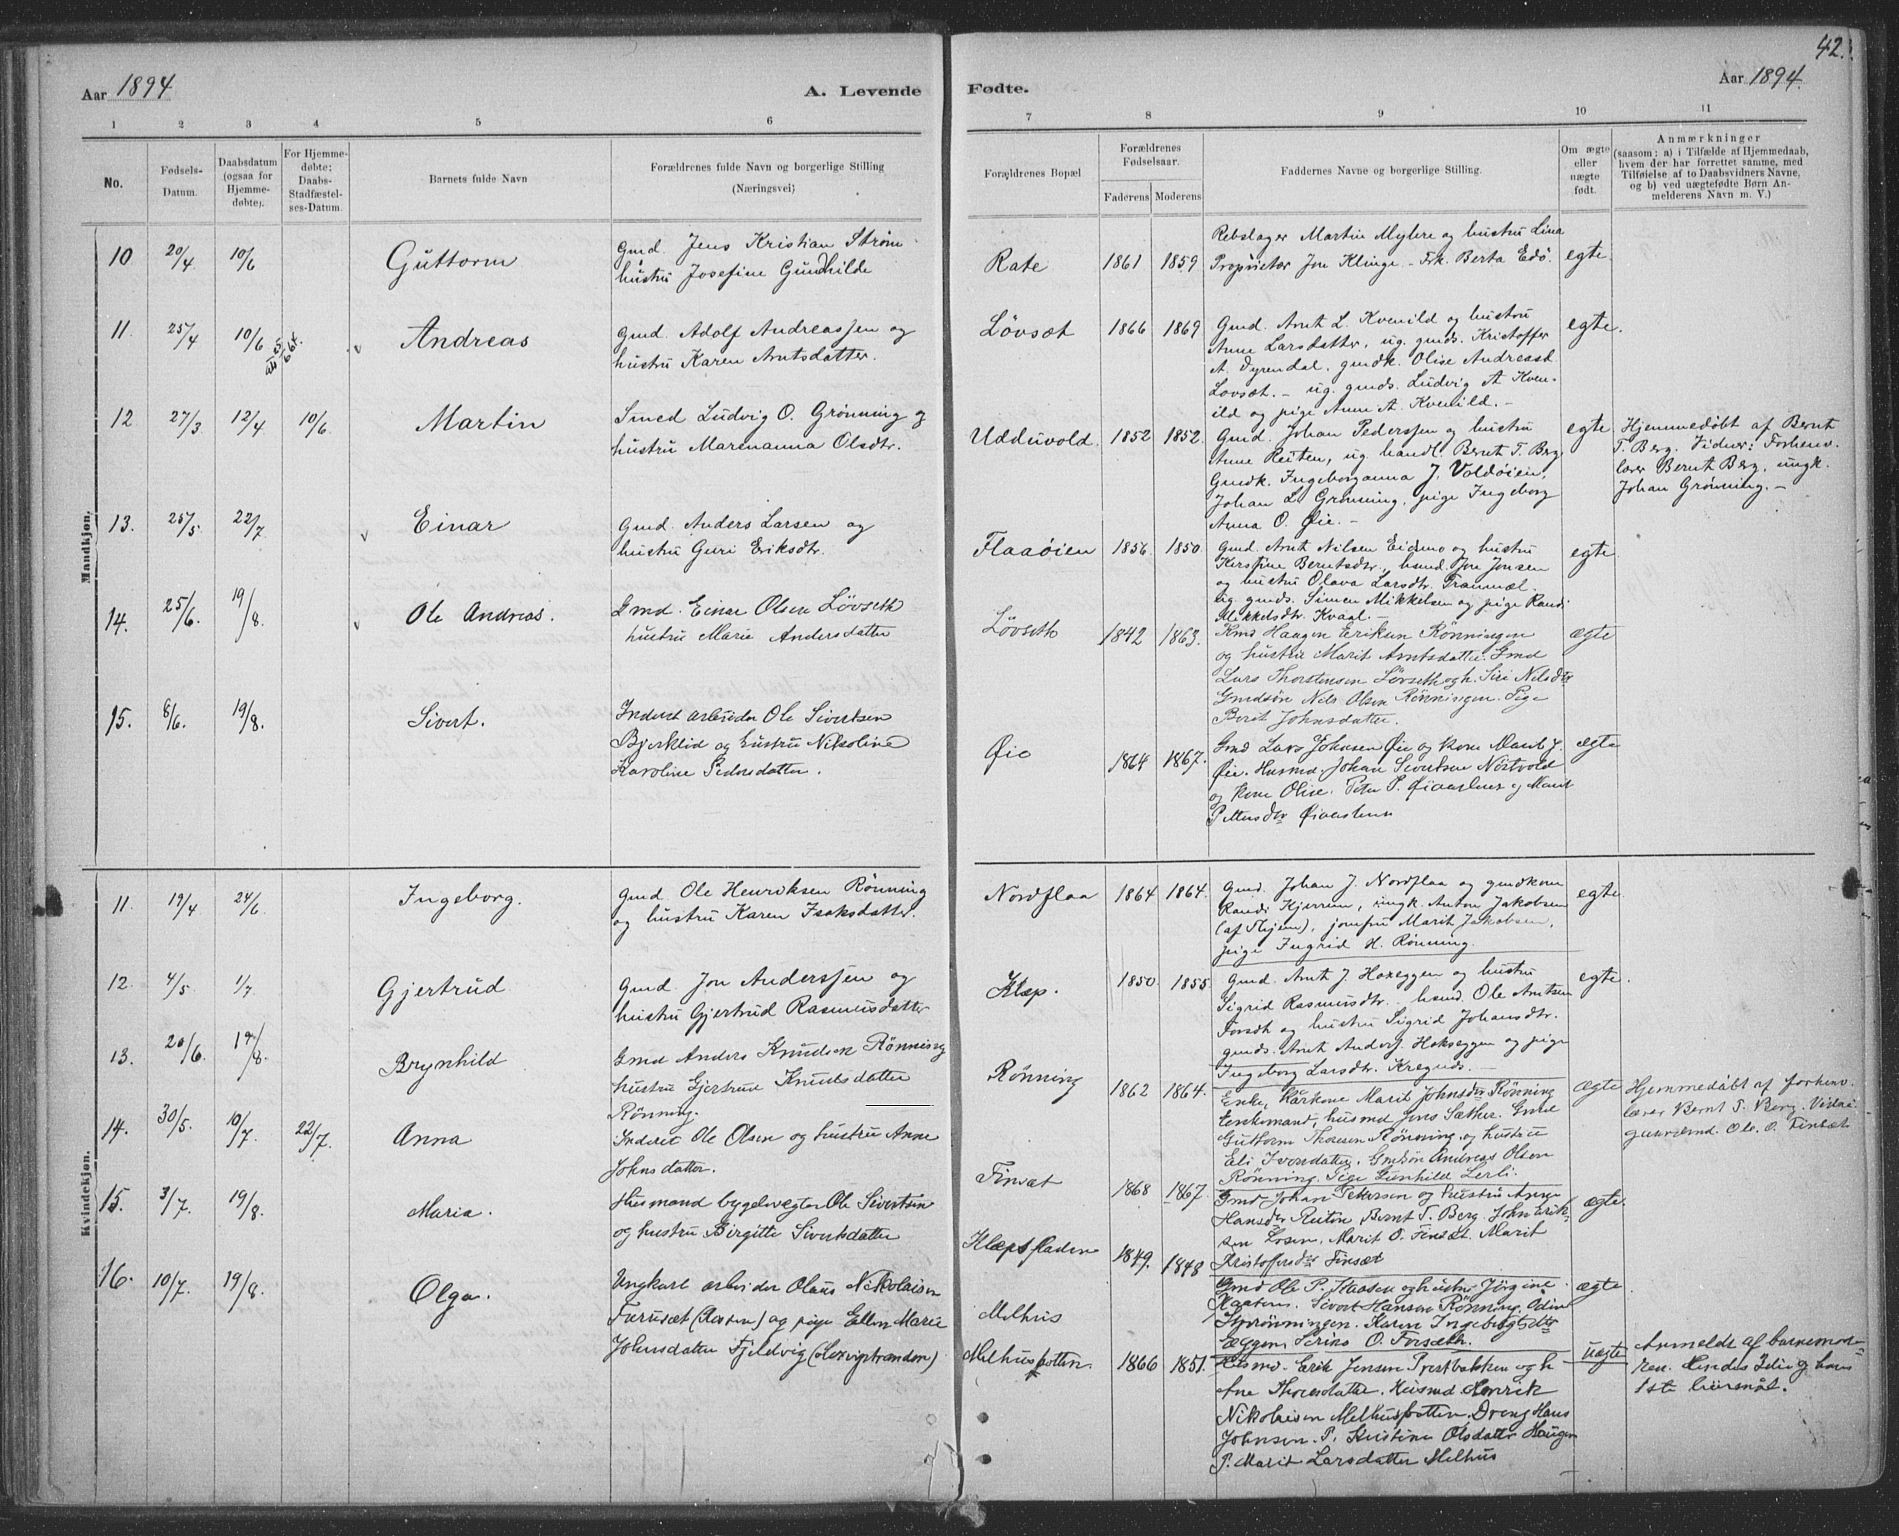 42.
Aar 1894
A. Levende
Fødte.
Aar 1894.
1 2 3 4 5 6
7 8 9 10 11
No.
Fødsels-
Datum.
Daabsdatum
(ogsaa for
Hjemme-
døbte).
For Hjemme-
døbte;
Daabs-
Stadfæstel-
ses-Datum.
Barnets fulde Navn
Forældrenes fulde Navn og borgerlige Stilling
(Næringsvei)
Forældrenes Bopæl
Forældrenes
Fødselsaar.
Faderens Moderens
Faddernes Navne og borgerlige Stilling.
Om ægte
eller
uægte
født.
Anmærkninger
(saasom: a) i Tilfælde af Hjemmedaab,
hvem der har forrettet samme, med
Tilføielse af to Daabsvidners Navne,
og b) ved uægtefødte Børn An-
melderens Navn m. V.)
Mandkjøn.
10 20/4 10/6 Guttorm
Gmd. Jens Kristian Strøm
hustru Josefine Gundhilde
Rate 1861 1859
Rebslager Martin Myhre og hustru Lina
Proprietær Jon Klinge - Frk. Berta Edø.
egte.
11. 25/4 10/6 Andreas
Gmd. Adolf Andreassen og
hustru Karen Arntsdatter.
Løvsæt 1866 1869
Gmd. Arnt L. Kvenild og hustru
Anne Larsdatter, ug. gmds. Kristoffer
A. Dyrendal, gmdk. Olise Andreasd.
Løvsæt. - ug. gmds. Ludvig A. Kven-
ild og pige Anne A. Kvenild. -
egte.
12 27/3 12/4 10/6 Martin
Smed Ludvig O. Grønning og
hustru Marenanna Olsdtr.
Udduvold. 1852 1852.
Gmd. Johan Pederssen og hustru
Anne Reiten, ug. handl. Bernt T. Berg,
Gmdk. Ingeborganna J. Voldøien,
Johan L. Grønning, pige Ingeborg
Anna O. Øie. -
egte.
Hjemmedøbt af Bernt
T. Berg. Vidner: Forhenv.
lærer Bernt Berg, ungk.
Johan Grønning. -
13. 25/5 22/7 Einar
Gmd. Anders Larsen og
hustru Guri Eriksdtr.
Flaaøien 1856. 1850.
Gmd. Arnt Nilsen Eidsmo og hustru
Kerstine Berntsdtr., husmd. Jon Jonsen
og hustru Olava Larsdtr. Tranmæl.
ug. gmds. Simen Mikkelsen og pige Randi
Mikkelsdtr. Kvaal. -
egte
14. 25/6. 19/8. Ole Andreas.
Gmd. Einar Olsen Løvseth
hustru Marie Andersdatter
Løvseth 1842 1863.
Gmd Haagen Eriksen Rønningen
og hustru Marit Arntsdatter. Gmd
Lars Thorstensen Løvseth og h. Siri Nilsdtr
Gmdsøn Nils Olsen Rønningen. Pige
Berit Johnsdatter.
ægte
15. 8/6. 19/8. Sivert.
Inderst arbeider Ole Sivertsen
Bjerklid og hustru Nikoline
Karoline Pedersdatter.
Øie 1864 1867.
Gmd Lars Johnsen Øie og kone Marit J.
Øie. Husmd. Johan Sivertsen Nøstvold
og kone Olise. Peter P. Øiaashus og Marit
Pettersdtr Øiaashus
ægte
Kvindekjøn.
11. 19/4 24/6. Ingeborg.
Gmd Ole Henriksen Rønning
og hustru Karen Isaksdatter.
Nordflaa 1864 1864.
Gmd. Johan J. Nordflaa og gmdkone
Randi Kjerrem, ungk. Anton Jakobsen
(af Hjem), jomfru Marit Jakobsen,
pige Ingrid H. Rønning.
egte.
12. 4/5 1/7 Gjertrud
Gmd. Jon Anderssen og
hustru Gjertrud Rasmusdatter
Klæp. 1850. 1855.
Gmd. Arnt J. Hoxeggen og hustru
Sigrid Rasmusdtr. - husmd. Ole Arntsen
Forset og hustru Sigrid Johansdtr.
gmds. Arnt Anders. Hokseggen og pige
Ingeborg Larsdtr. Kregnes. -
egte.
13. 20/6. 19/8. Brynhild
Gmd Anders Knudsen Rønning
hustru Gjertrud Knudsdatter
Rønning.
Rønning 1862 1864.
Enke Kårkone Marit Johnsdtr Rønning
Enkemand, husmd Jens Sæther. Gmd
Guttorm Thoresen Rønning og hustru
Eli Iversdatter, Gmdsøn Andreas Olsen
Rønning. Pige Gunhild Lerli.
ægte
Hjemmedøbt af forhenv.
lærer Bernt T. Berg. Vidne:
gaardmd. Ole. O. Finsæt
14. 30/5. 10/7. 22/7. Anna
Inderst Ole Olsen og hustru Anne
Johnsdatter.
Finsæt 1868 1867.
Gmd Johan Petersen og hustru Anne
Hansdtr Reiten, Bernt T. Berg John Erik-
sen Losen, Marit O. Finset. Marit
Kristoffersdtr Finsæt
ægte.
15. 3/7. 19/8. Maria.
Husmand bygdevægter Ole Sivertsen
og hustru Birgitte Sivertsdatter
Klæpsfladen 1849. 1848
Gmd Ole P. Kaasen og hustru Jørgine
Kaaten. Sivert Hansen Rønning. Odin
Karen Ingebrigtsdtr
Eggen Serine O. Forseth.
ægte
16. 10/7. 19/8. Olga.
Ungkarl arbeider Olaus Nikolaisen
Furusæt og pige Ellen Marie
Johnsdatter Fjeldvig
Melhus
Melhustrøen 1866 1851.
Husmd. Erik Jensen Prestbakken og h
Ane Thoresdatter. Husmd Henrik
Nikolaisen Melhus. Dreng Hans
Johnsen. P. Kristine Olsdatter Haugen
P. Marit Larsdatter Melhus
uægte
Anmeldt af barnemod-
ren. Hendes 2det og hans
1ste leiermål.